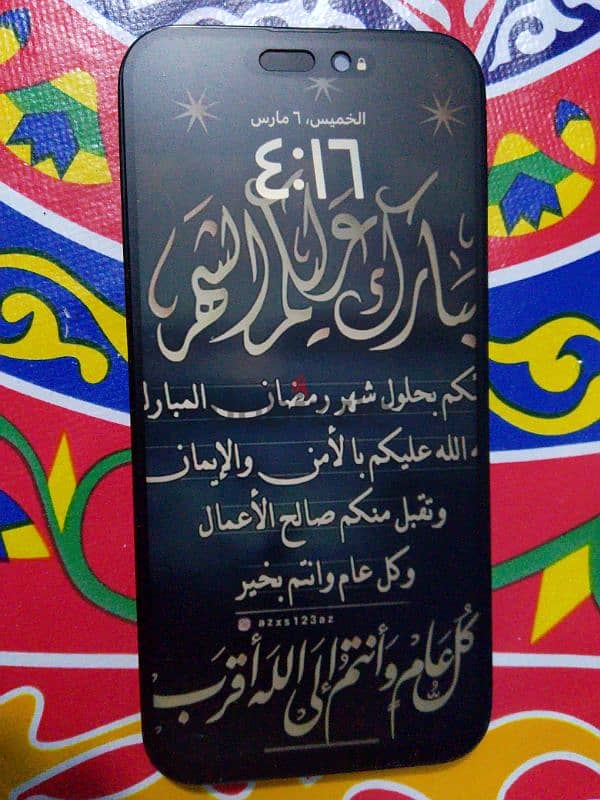 الخميس، ٦ مارس
٤:١٦
يبارك عليكم الشهر
نكم بحلول شهر رمضان المبارك
الله عليكم بالأمن والإيمان
وتقبل منكم صالح الأعمال
وكل عام وانتم بخير
azxs123az
كل عام وأنتم إلى الله أقرب